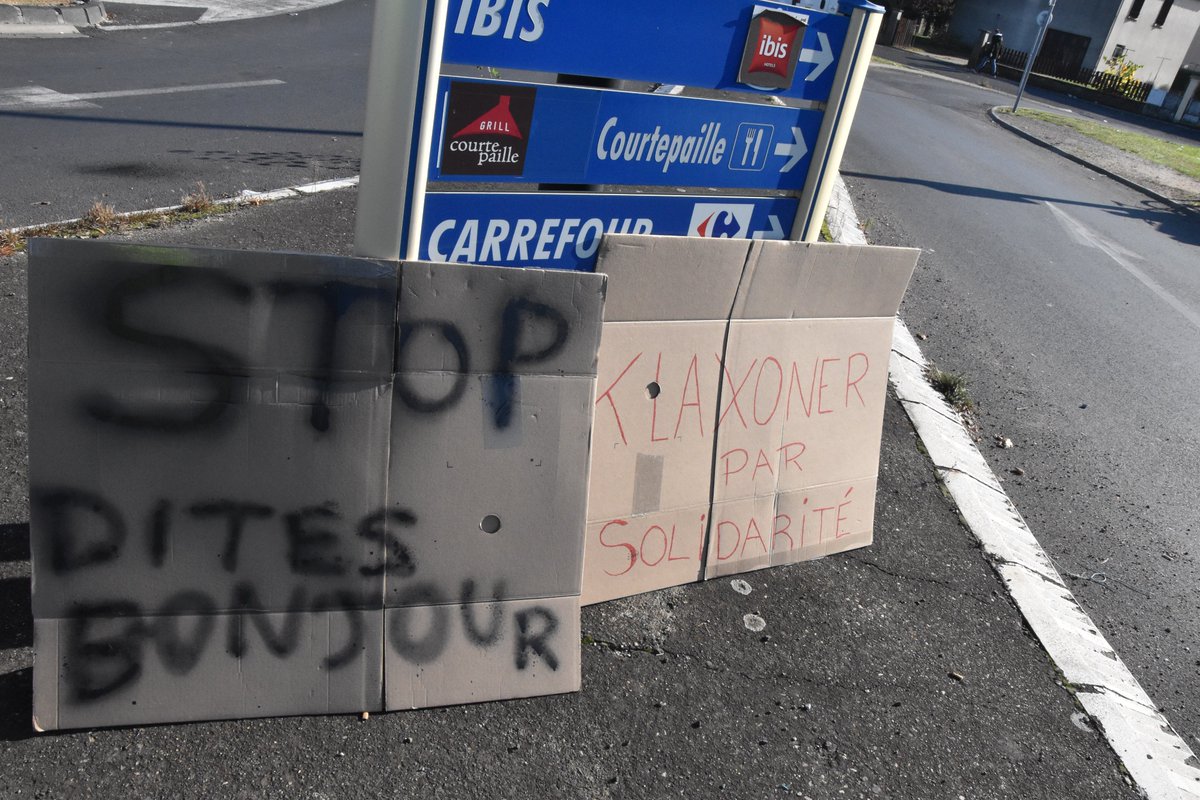 IBIS
ibis
HOTELS
GRILL
courte
paille
Courtepaille
CARREFOUR
STOP
DITES
BONJOUR
KLAXONER
PAR
SOLIDARITÉ